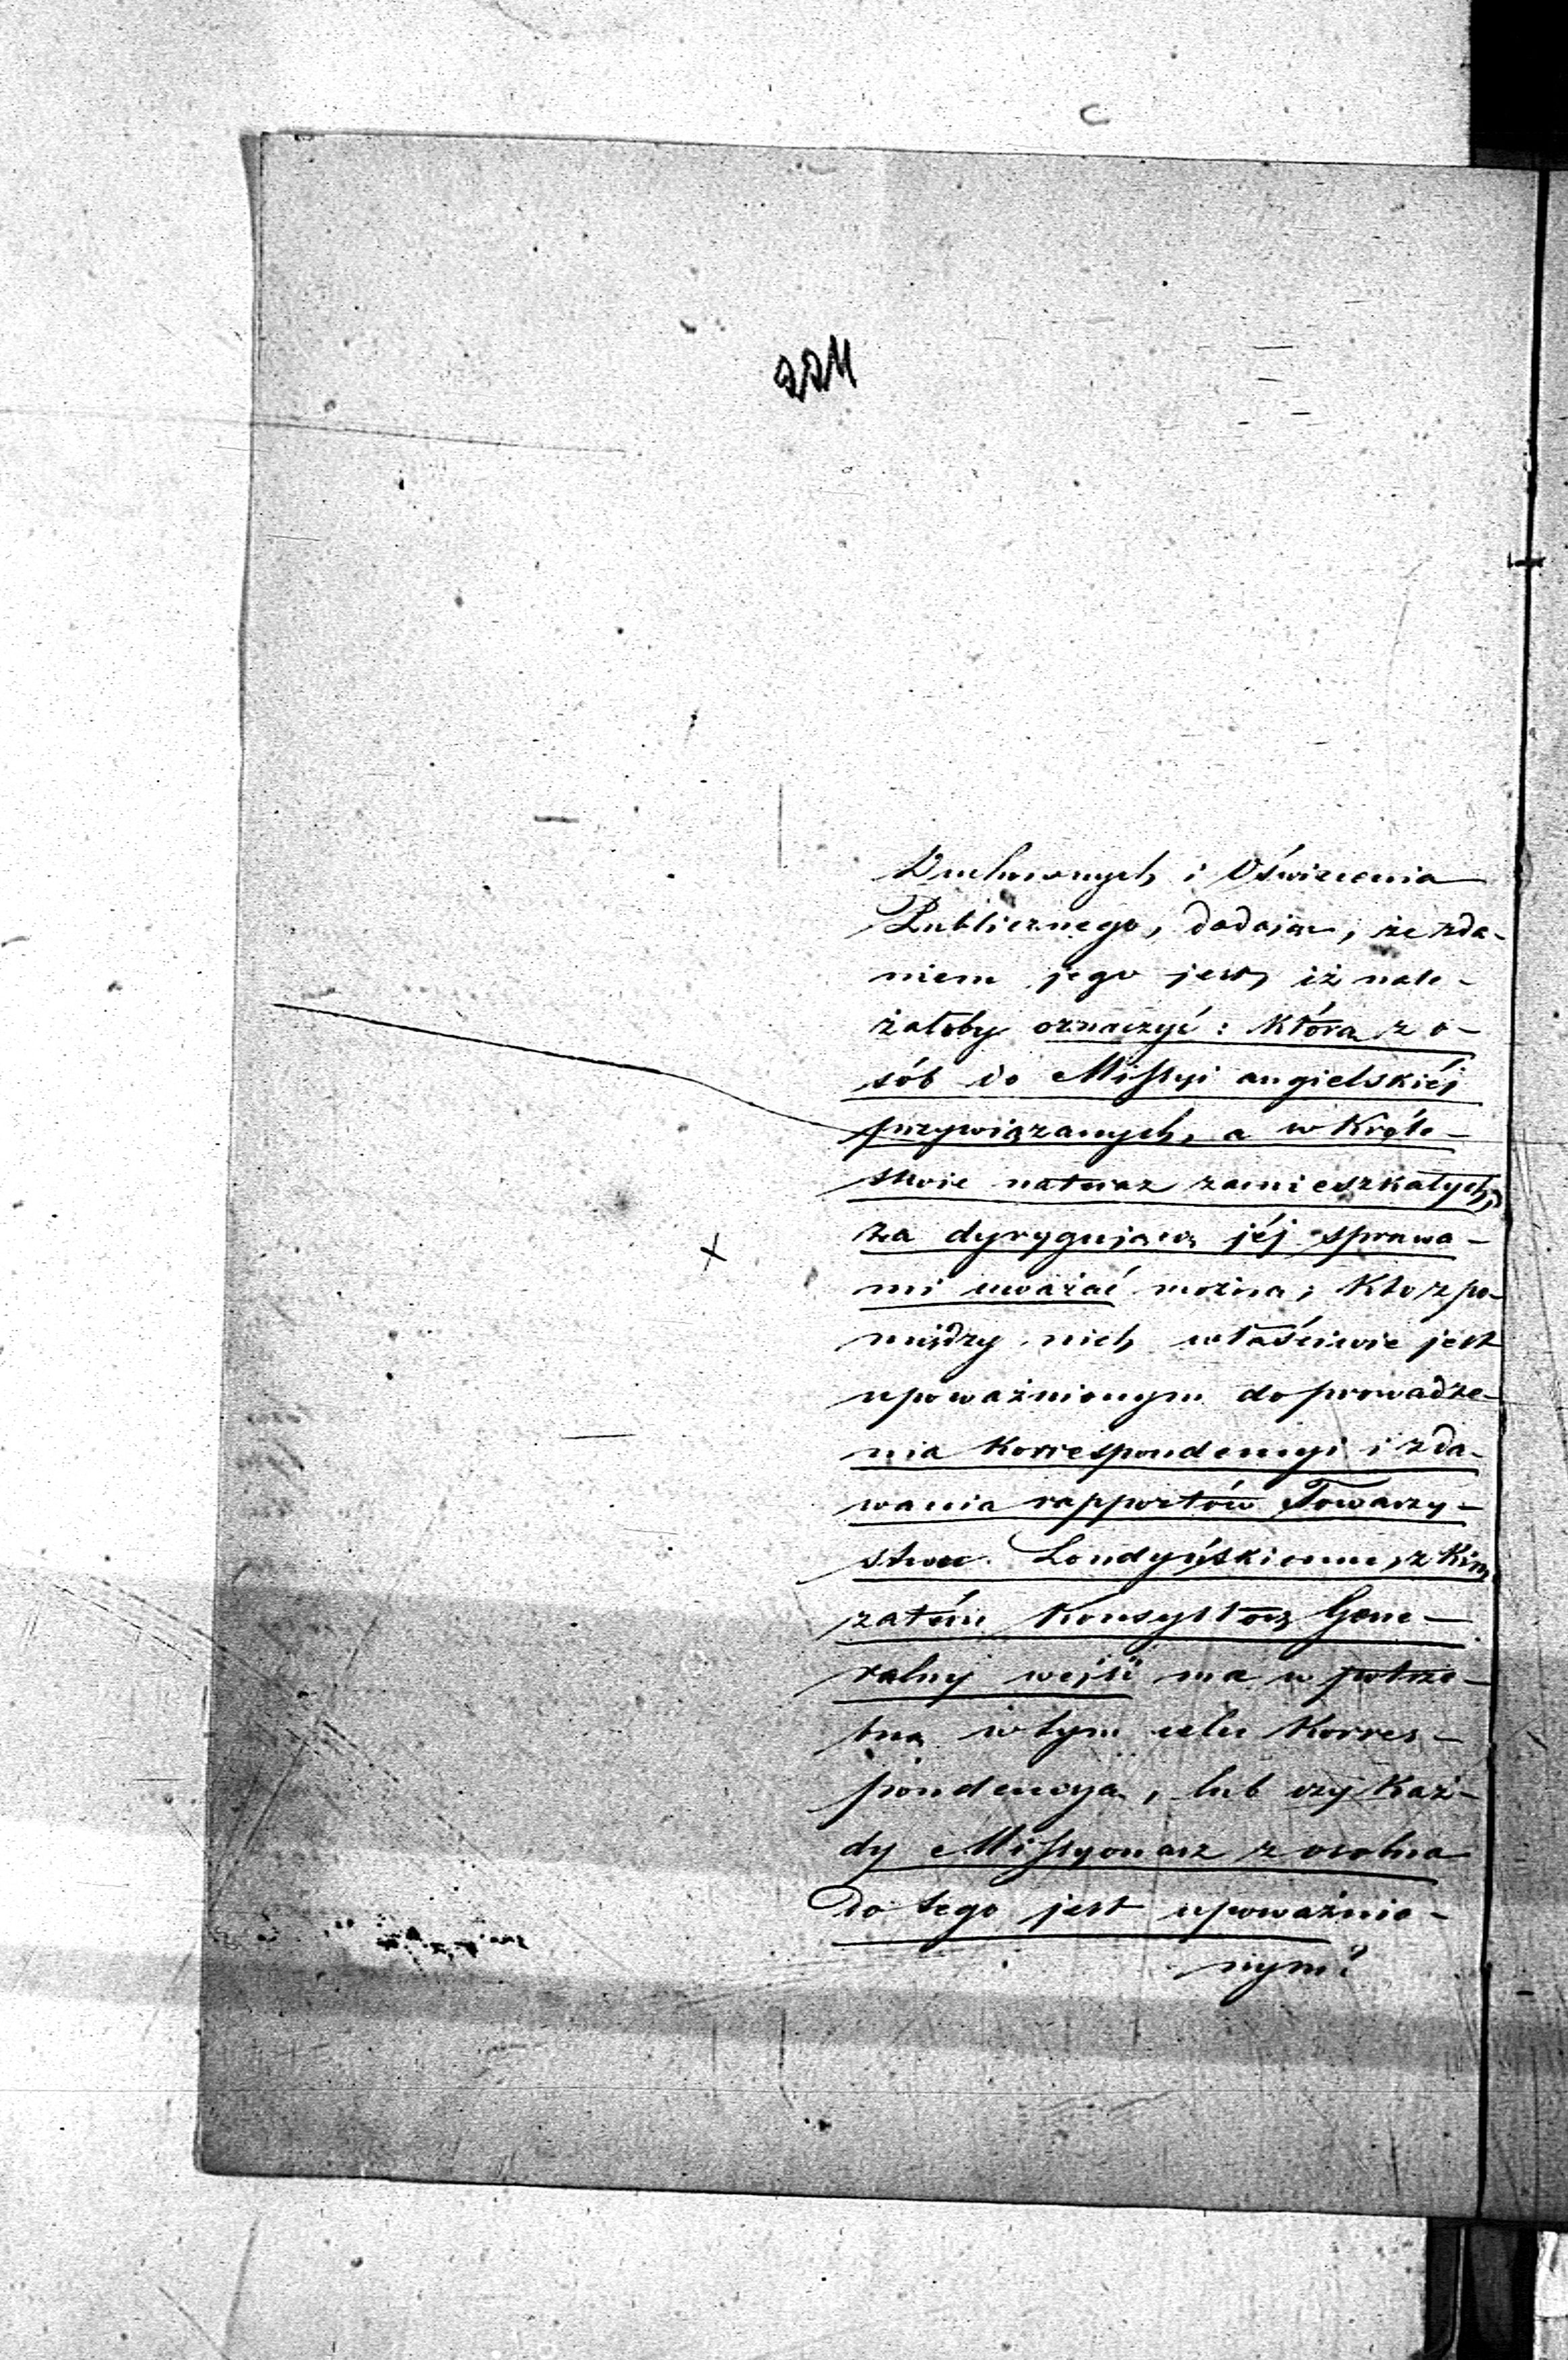 221
Duchownych i Oświecenia
Publicznego, dodając, że zda-
niem jego jest, iż nale-
żałoby oznaczyć: która z o-
sób do Missyi angielskiéj
przywiązanych, a w Króle-
stwie natéraz zamieszkałych,
za dyrygującą jéj sprawa-
mi uważać można; kto z po-
między nich właściwie jest
upoważnionym do prowadze-
nia korrespondencyi i zda-
wania rapportów Towarzy-
stwu Londyńskiemu, z kim
zatém Konsystorz Gene-
ralny wejść ma w potrze-
bną w tym celu korres-
pondencyą, lub czy każ-
dy Missyonarz z osobna
do tego jest upoważnio-
nym?